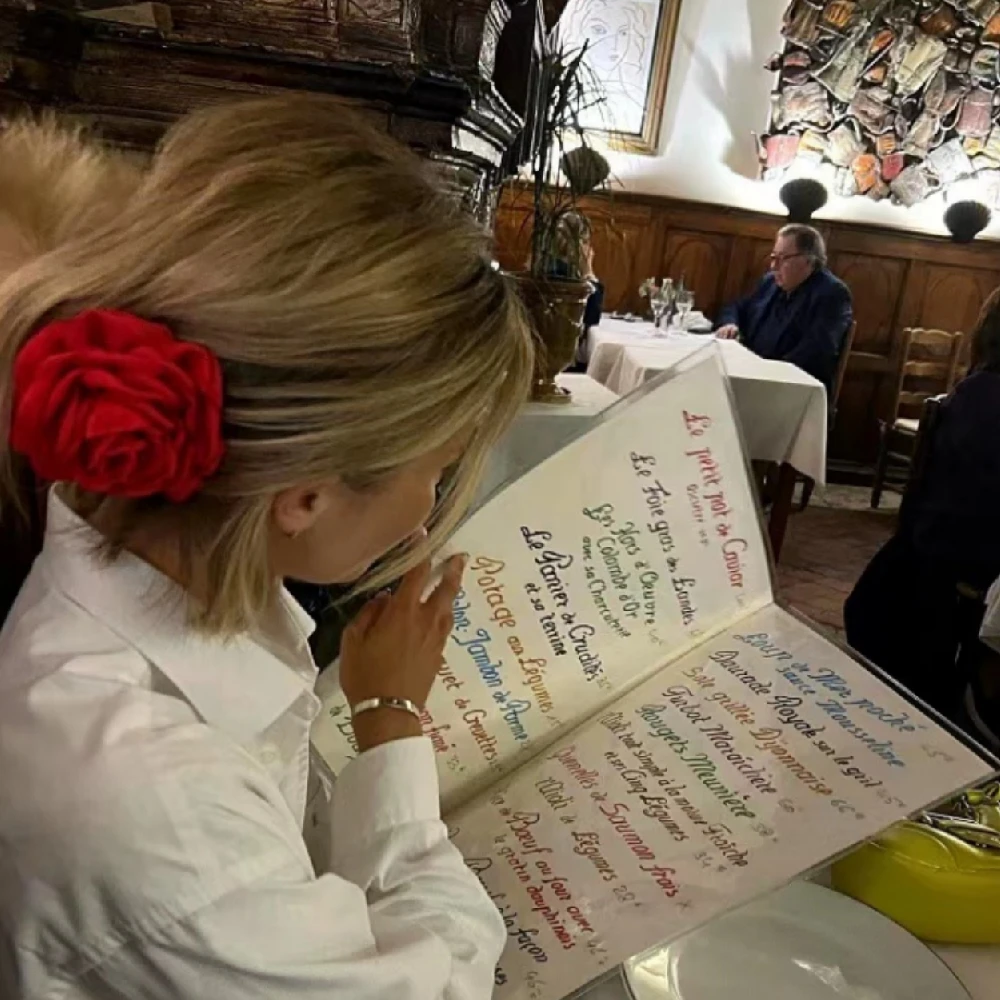 Le petit pot de Caviar
Le Foie gras des Landes
Les Hors d'Oeuvre
Colombe d'Or
avec sa Charcuterie
Le Panier de Crudités
et sa terrine
Potage aux Légumes
Melon-Jambon de Parme
de Crevettes
Loup de Mer poché
sauce Mousseline
Daurade Royale sur le gril
Sole grillée Dijonnaise 66
Turbot Maraîchère 60
Rougets Meunière
tout simple à la menthe fraîche
et ses Cinq Légumes 34
Quenelles de Saumon frais
Midi de Légumes 28
Bœuf au four avec
le gratin dauphinois
à la façon